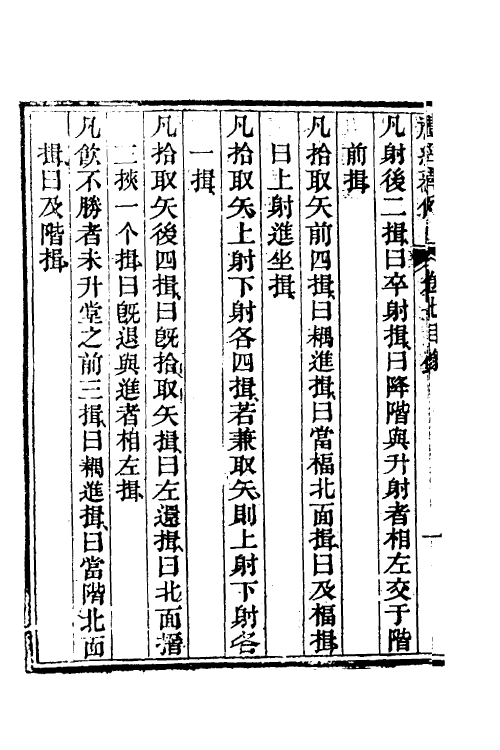 凡射後二揖曰卒射揖曰降階與升射者相左交于階
前揖
凡拾取矢前四揖曰耦進揖曰當楅北面揖曰及楅揖
曰上射進坐揖
凡拾取矢上射下射各四揖若兼取矢則上射下射各
一揖
凡拾取矢後四揖曰旣拾取矢揖曰左還揖曰北面搢
三挾一个揖曰旣退與進者相左揖
凡飲不勝者未升堂之前三揖曰耦進揖曰當階北面
揖曰及階揖